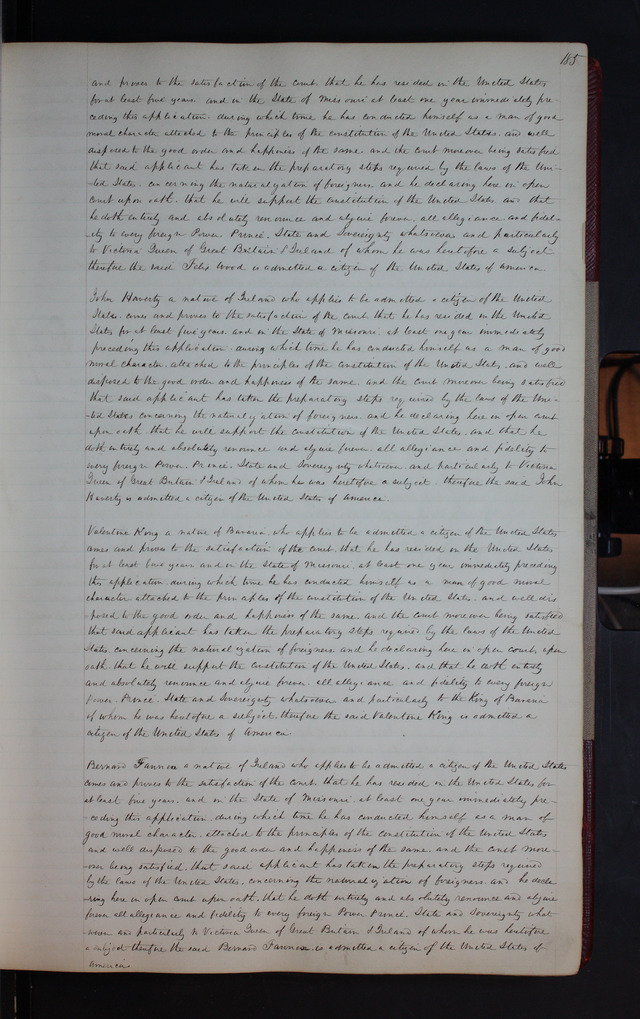 185
and proves to the satisfaction of the court, that he has resided in the United States
for at least five years and in the State of Missouri at least one year immediately pre-
ceding this application, during which time he has conducted himself as a man of good
moral character attached to the principles of the constitution of the United States, and well
disposed to the good order and happiness of the same and the court moreover being satisfied
that said applicant has taken the preparatory steps required by the laws of the Uni-
ted States, concerning the naturalization of foreigners, and he declaring here in open
court upon oath, that he will support the constitution of the United States, and that
he doth entirely and absolutely renounce and abjure forever, all allegiance and fidel-
ity to every foreign Power, Prince, State and Sovereignty whatsoever and particularly
to Victoria Queen of Great Britain & Ireland of whom he was heretofore a subject
therefore the said Felix Wood is admitted a citizen of the United States of America.
John Haverty a native of Ireland who applies to be admitted a citizen of the United
States, comes and proves to the satisfaction of the court, that he has resided in the United
States for at least five years, and in the State of Missouri, at least one year immediately
preceding this application, during which time he has conducted himself as a man of good
moral character attached to the principles of the constitution of the United States, and well
disposed to the good order and happiness of the same and the court moreover being satisfied
that said applicant has taken the preparatory steps required by the laws of the Uni-
ted States concerning the naturalization of foreigners, and he declaring here in open court
upon oath, that he will support the constitution of the United States, and that he
doth entirely and absolutely renounce and abjure forever, all allegiance and fidelity to
every foreign Power, Prince, State and Sovereignty whatsoever, and particularly to Victoria
Queen of Great Britain & Ireland of whom he was heretofore a subject, therefore the said John
Haverty is admitted a citizen of the United States of America.
Valentine King a native of Bavaria, who applies to be admitted a citizen of the United States
comes and proves to the satisfaction of the court, that he has resided in the United States
for at least five years and in the State of Missouri, at least one year immediately preceding
this application during which time he has conducted himself as a man of good moral
character attached to the principles of the constitution of the United States, and well dis
posed to the good order and happiness of the same, and the court moreover being satisfied
that said applicant has taken the preparatory steps required by the laws of the United
States, concerning the naturalization of foreigners and he declaring here in open court, upon
oath, that he will support the Constitution of the United States, and that he doth entirely
and absolutely renounce and abjure forever, all allegiance and fidelity to every foreign
Power, Prince, State and Sovereignty whatsoever and particularly to the King of Bavaria
of whom he was heretofore a subject, therefore the said Valentine King is admitted a
citizen of the United States of America
Bernard a native of Ireland who applies to be admitted a citizen of the United States
comes and proves to the satisfaction of the court, that he has resided in the United States, for
at least five years, and in the State of Missouri, at least one year immediately pre-
-ceding this application, during which time he has conducted himself as a man of
good moral character, attached to the principles of the constitution of the United States
and well disposed to the good order and happiness of the same, and the court more-
-over being satisfied, that said applicant has taken the preparatory steps required
by the laws of the United States, concerning the naturalization of foreigners, and he decla
-ring here in open court upon oath, that he doth entirely and absolutely renounce and abjure
forever all allegiance and fidelity to every foreign Power Prince, State and Sovereignty what
-soever and particularly to Victoria Queen of Great Britain & Ireland of whom he was heretofore
a subject therefore the said Bernard is admitted a citizen of the United States of
America